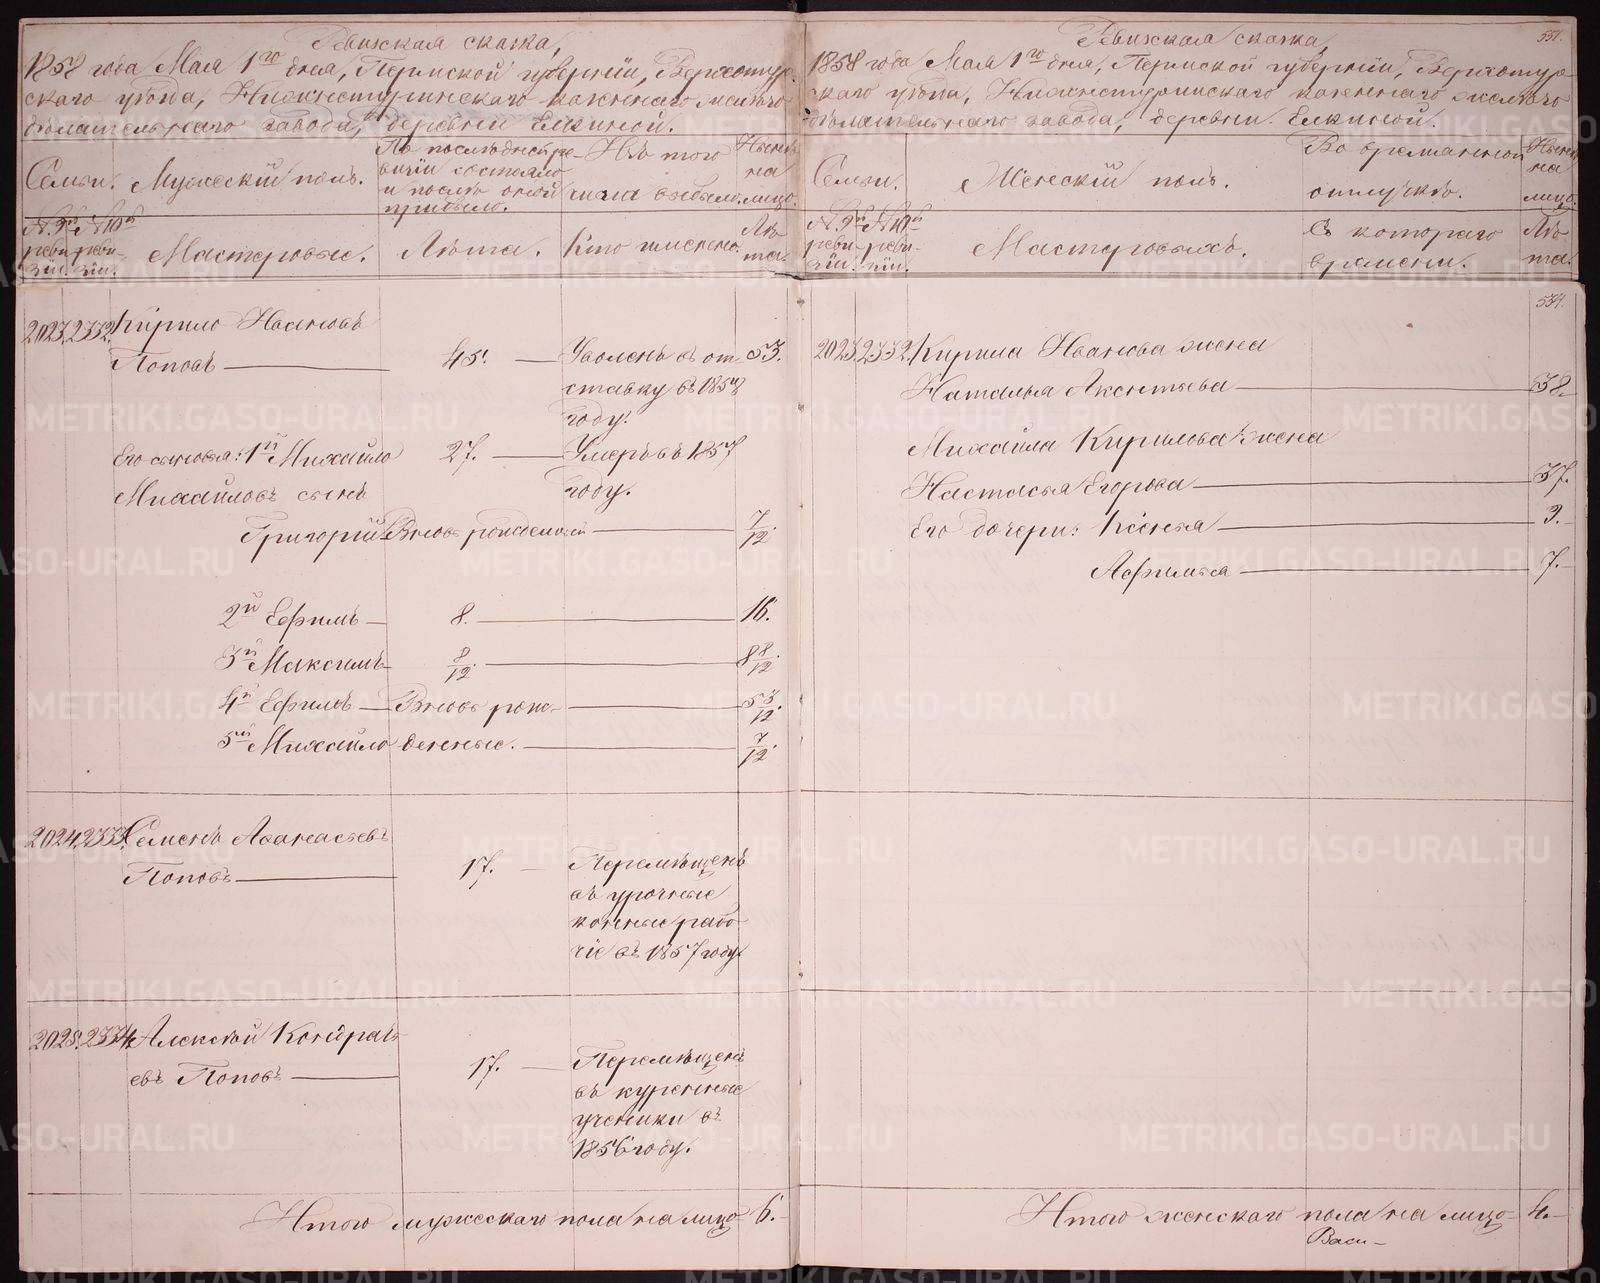 Ревизская сказка,
1858 года Мая 1го дня, Пермской губернии, Верхотур-
скаго уѣзда, Нижнетуринскаго казеннаго желѣзо-
дѣлательнаго завода, деревни Елкиной.
Семьи. Мужескій полъ. По послѣдней ре-
визіи состояло
и послѣ оной
прибыло. Изъ того
числа выбыло. Нынѣ
на
лицо.
№ 9й реви-
зіи. № 10й реви-
зіи. Мастеровые. Лѣта. Кто именно. Лѣ-
та.
2023. 2332. Кирило Ивановъ
Поповъ 45. Уволенъ въ от 53.
ставку въ 1858
году.
Его сыновья: 1й Михайло 27. Умеръ въ 1857
году.
Михайловъ сынъ
Григорій Вновь рожденный 7/12.
2й Ефимъ 8. 16.
3й Максимъ 8/12. 8 8/12.
4й Ефимъ Вновь рож- 5 3/12.
5й Михайло денные. 7/12.
2024. 2333. Семенъ Афанасьевъ
Поповъ 17. Перемѣщенъ
въ урочные
конные рабо-
чіе въ 1857 году.
2025. 2334. Алексѣй Кондрать-
евъ Поповъ 17. Перемѣщенъ
въ куренные
ученики въ
1856 году.
Итого мужескаго пола на лицо 6.
Ревизская сказка, 551.
1858 года Мая 1го дня, Пермской губерніи, Верхотур-
скаго уѣзда, Нижнетуринскаго казеннаго желѣзо-
дѣлательнаго завода, деревни Елкиной.
Семьи. Женскій полъ. Во временной
отлучкѣ. Нынѣ
на
лицо.
№ 9й реви-
зіи. № 10й реви-
зіи. Мастеровыхъ. Съ котораго
времени. Лѣ-
та.
534.
2023. 2332. Кирила Иванова жена
Наталья Акентьева 38.
Михайла Кирилова жена
Настасья Егорова 37.
Его дочери: Ксенья 9.
Афимья 7.
Итого женскаго пола на лицо 4.
Васи-
METRIKI.GASO-URAL.RU